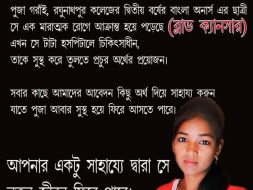 পুজা গরাঁই, রঘুনাথপুর কলেজের দ্বিতীয় বর্ষের বাংলা অনার্স এর ছাত্রী
সে এক মারাত্মক রোগে আক্রান্ত হয়ে পড়েছে (ব্লাড ক্যানসার)
এখন সে টাটা হসপিটালে চিকিৎসাধীন,
তাকে সুস্থ করে তুলতে প্রচুর অর্থের প্রয়োজন।
সবার কাছে আমাদের আবেদন কিছু অর্থ দিয়ে সাহায্য করুন
যাতে পুজা আবার সুস্থ হয়ে ফিরে আসতে পারে।
আপনার একটু সাহায্যে দ্বারা সে